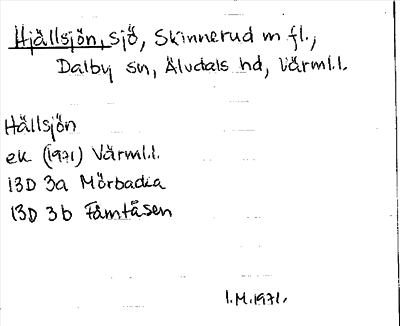 Hjällsjön, sjö, Skinnerud m fl.,
Dalby sn, Älvdals hd, Värml.l.
Hällsjön
ek (1971) Värml.l.
13D 3a Mörbacka
13D 3b Fämtåsen
I.M.1971.